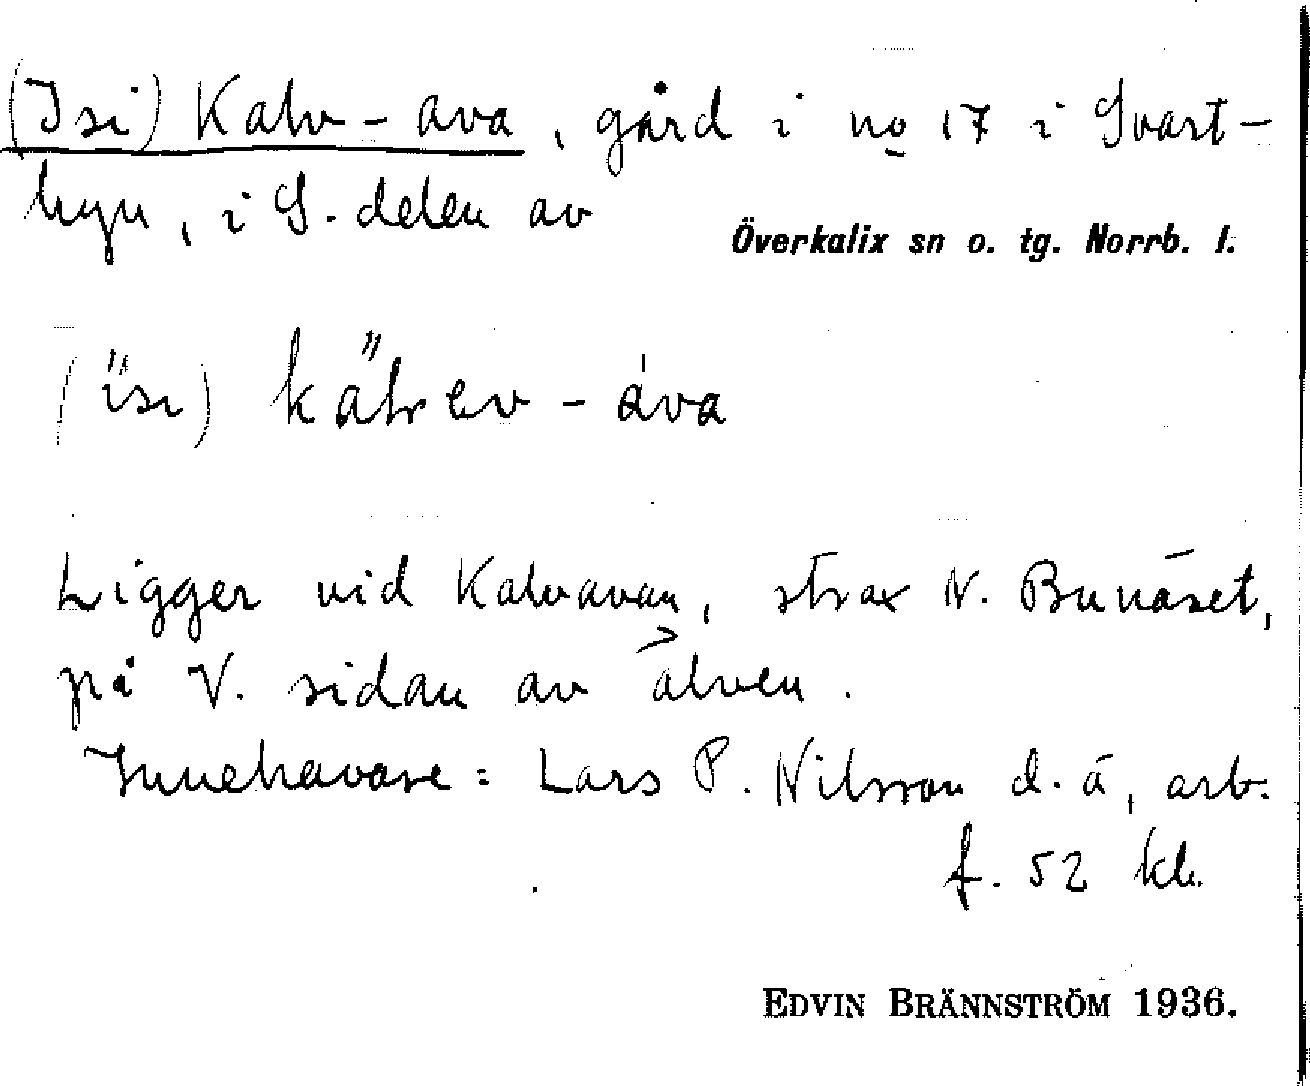 (Isi) Kalv-ava, gård i no 17 i Svart-
byn, i S. delen av
Överkalix sn o. tg. Norrb. l.
Ligger vid Kalvavan, strax N. Bunäset,
på V. sidan av älven.
Innehavare: Lars P. Nilsson d.ä, arb.
f. 52 kh.
EDVIN BRÄNNSTRÖM 1936.